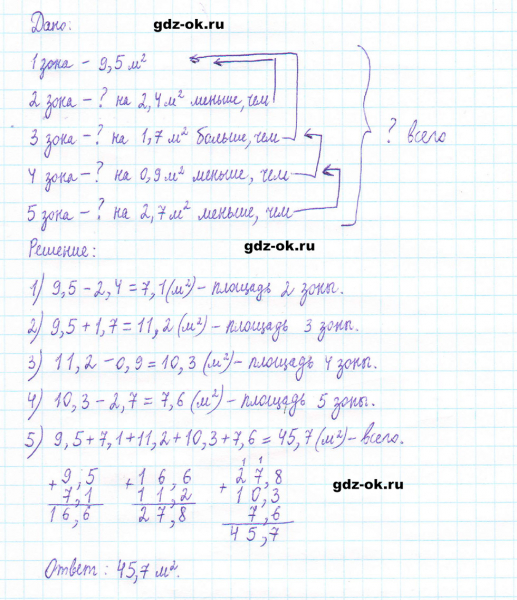 Дано:
gdz-ok.ru
1 зона - 9,5 м²
2 зона - ? на 2,4 м² меньше, чем
3 зона - ? на 1,7 м² больше, чем
? всего
4 зона - ? на 0,9 м² меньше, чем
5 зона - ? на 2,7 м² меньше, чем
Решение:
gdz-ok.ru
1) 9,5 - 2,4 = 7,1 (м²) - площадь 2 зоны.
2) 9,5 + 1,7 = 11,2 (м²) - площадь 3 зоны.
3) 11,2 - 0,9 = 10,3 (м²) - площадь 4 зоны.
4) 10,3 - 2,7 = 7,6 (м²) - площадь 5 зоны.
5) 9,5 + 7,1 + 11,2 + 10,3 + 7,6 = 45,7 (м²) - всего.
1 1
+ 9,5 + 16,6 + 27,8
7,1 11,2 10,3
16,6 27,8 7,6
45,7
gdz-ok.ru
Ответ: 45,7 м².